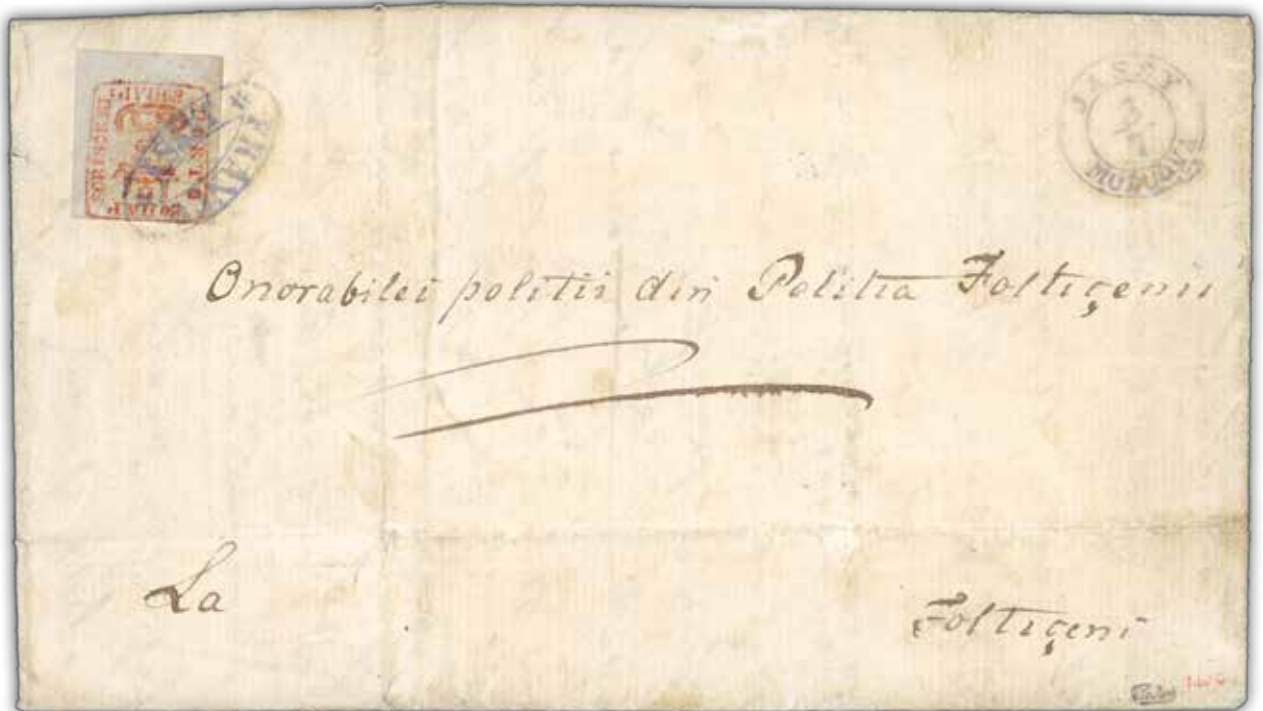 JASSY
MOLDOVA
FRANCO
Onorabilei politii din Politia Foltiçenii
La
Foltiçeni